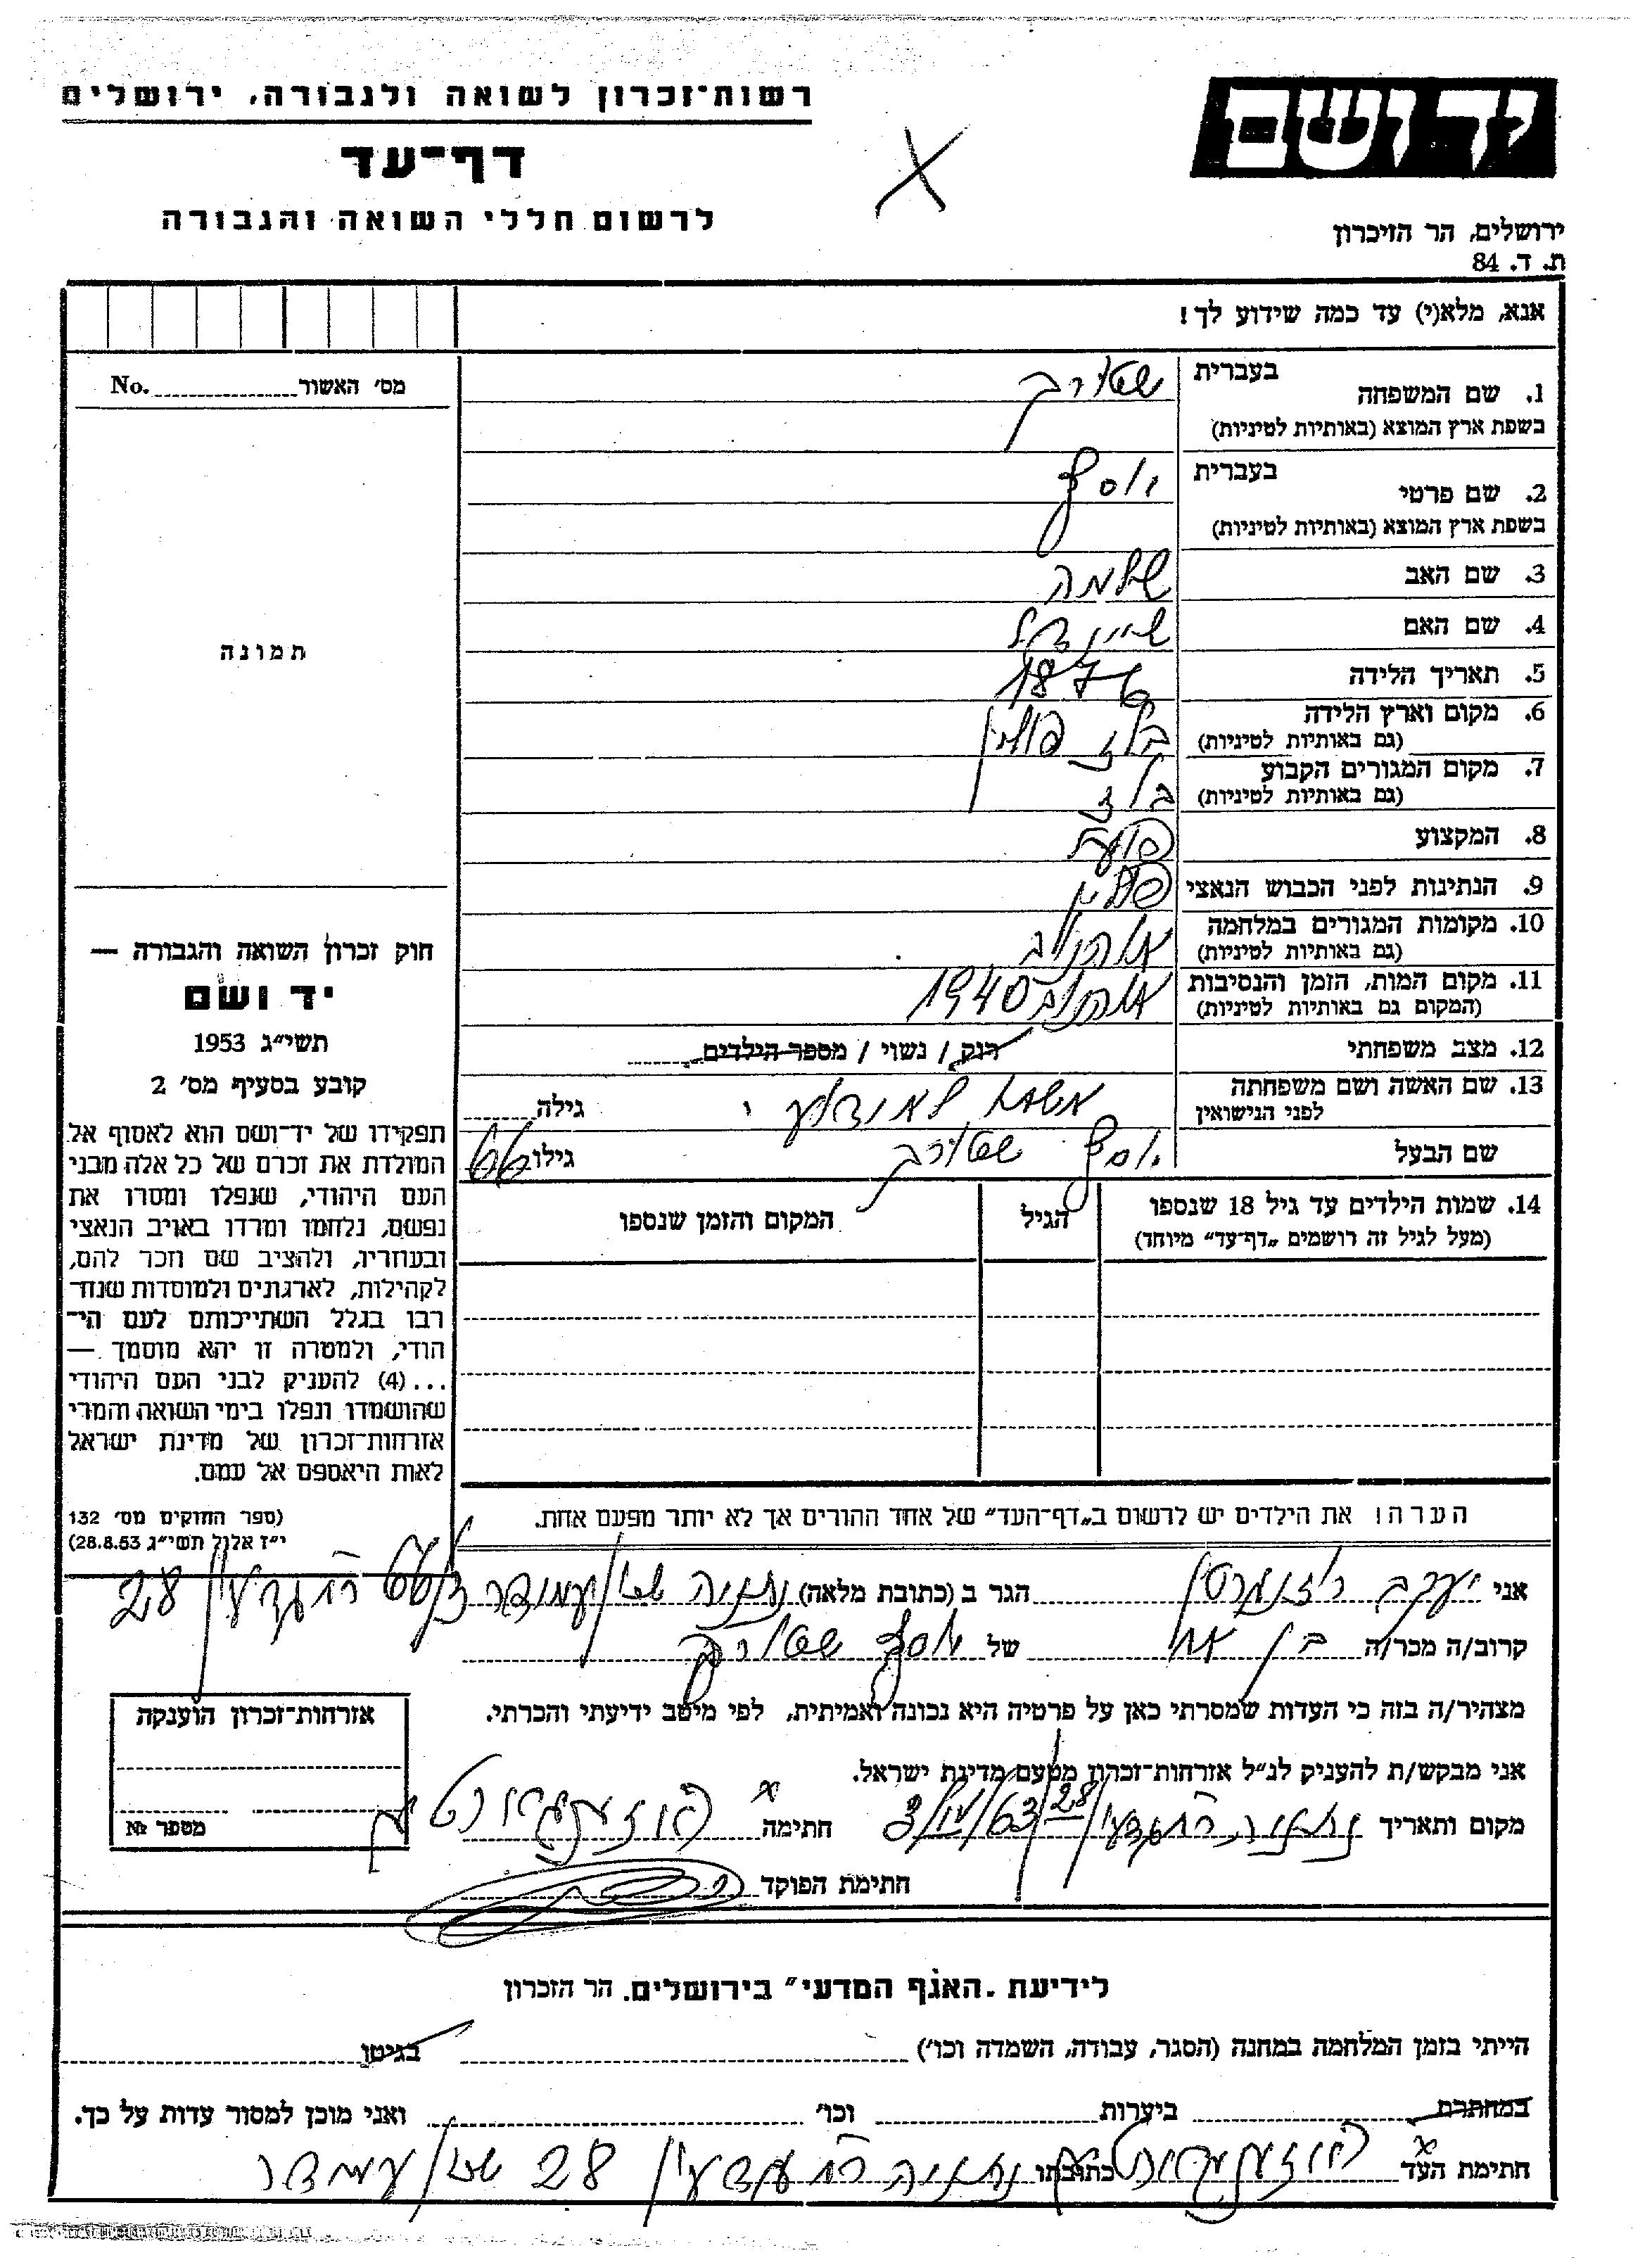 רשות־זכרון לשואה ולגבורה, ירושלים
יד ושם
דף־עד
לרשום חללי השואה והגבורה
ירושלים, הר הזיכרון
ת. ד. 84
אנא, מלא(י) עד כמה שידוע לך!
מס׳ האשור No.
תמונה
1. שם המשפחה בעברית
בשפת ארץ המוצא (באותיות לטיניות)
2. שם פרטי בעברית יוסף
בשפת ארץ המוצא (באותיות לטיניות)
3. שם האב שלמה
4. שם האם שיינדל
5. תאריך הלידה 1876
6. מקום וארץ הלידה בלז פולין
(גם באותיות לטיניות)
7. מקום המגורים הקבוע בלז
(גם באותיות לטיניות)
8. המקצוע פועל
9. הנתינות לפני הכבוש הנאצי פולין
10. מקומות המגורים במלחמה
(גם באותיות לטיניות)
11. מקום המות, הזמן והנסיבות 1940
(המקום גם באותיות לטיניות)
12. מצב משפחתי רוק / נשוי / מספר הילדים
13. שם האשה ושם משפחתה גילה
לפני הנישואין
שם הבעל יוסף גילו 66
14. שמות הילדים עד גיל 18 שנספו הגיל המקום והזמן שנספו
(מעל לגיל זה רושמים „דף־עד״ מיוחד)
חוק זכרון השואה והגבורה —
יד ושם
תשי״ג 1953
קובע בסעיף מס׳ 2
תפקידו של יד־ושם הוא לאסוף אל
המולדת את זכרם של כל אלה מבני
העם היהודי, שנפלו ומסרו את
נפשם, נלחמו ומרדו באויב הנאצי
ובעוזריו, ולהציב שם וזכר להם,
לקהילות, לארגונים ולמוסדות שנח־
רבו בגלל השתייכותם לעם הי־
הודי, ולמטרה זו יהא מוסמך —
...(4) להעניק לבני העם היהודי
שהושמדו ונפלו בימי השואה והמרי
אזרחות־זכרון של מדינת ישראל
לאות היאספם אל עמם.
(ספר החוקים מס׳ 132
י״ז אלול תשי״ג 28.8.53)
הערה: את הילדים יש לרשום ב„דף־העד״ של אחד ההורים אך לא יותר מפעם אחת.
אני יעקב הגר ב (כתובת מלאה) נתניה 28
קרוב/ה מכר/ה בן אח של יוסף
מצהיר/ה בזה כי העדות שמסרתי כאן על פרטיה היא נכונה ואמיתית, לפי מיטב ידיעתי והכרתי.
אני מבקש/ת להעניק לנ״ל אזרחות־זכרון מטעם מדינת ישראל.
מקום ותאריך נתניה 28 חתימה
חתימת הפוקד
אזרחות־זכרון הוענקה
מספר №
לידיעת „האגף המדעי״ בירושלים. הר הזכרון
הייתי בזמן המלחמה במחנה (הסגר, עבודה, השמדה וכו׳) בגיטו
במחתרת ביערות וכו׳ ואני מוכן למסור עדות על כך.
חתימת העד כתובתו נתניה 28